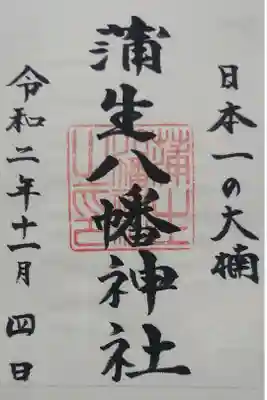 日本一の大楠
蒲生八幡神社
令和二年十一月四日